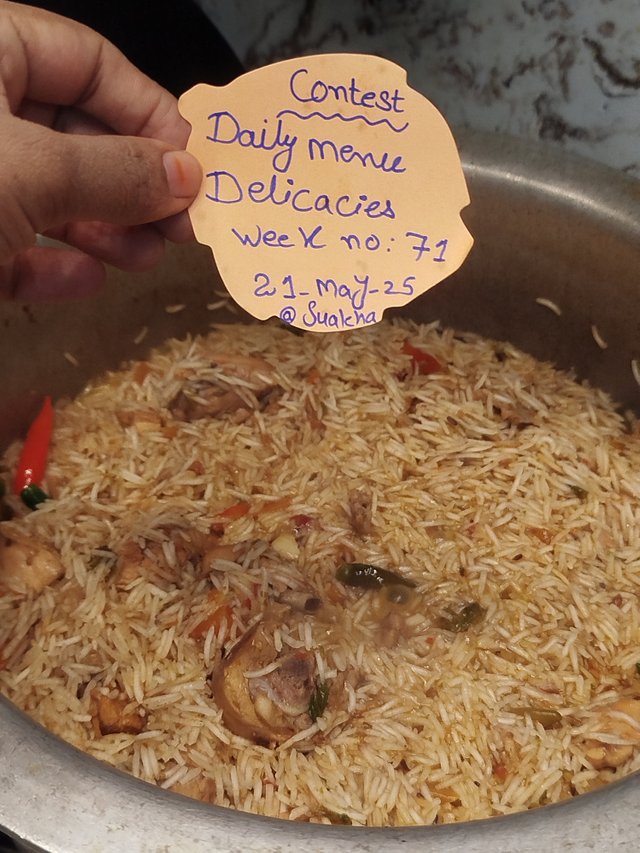 Contest
Daily menu
Delicacies
Week no: 71
21-May-25
@Suakha